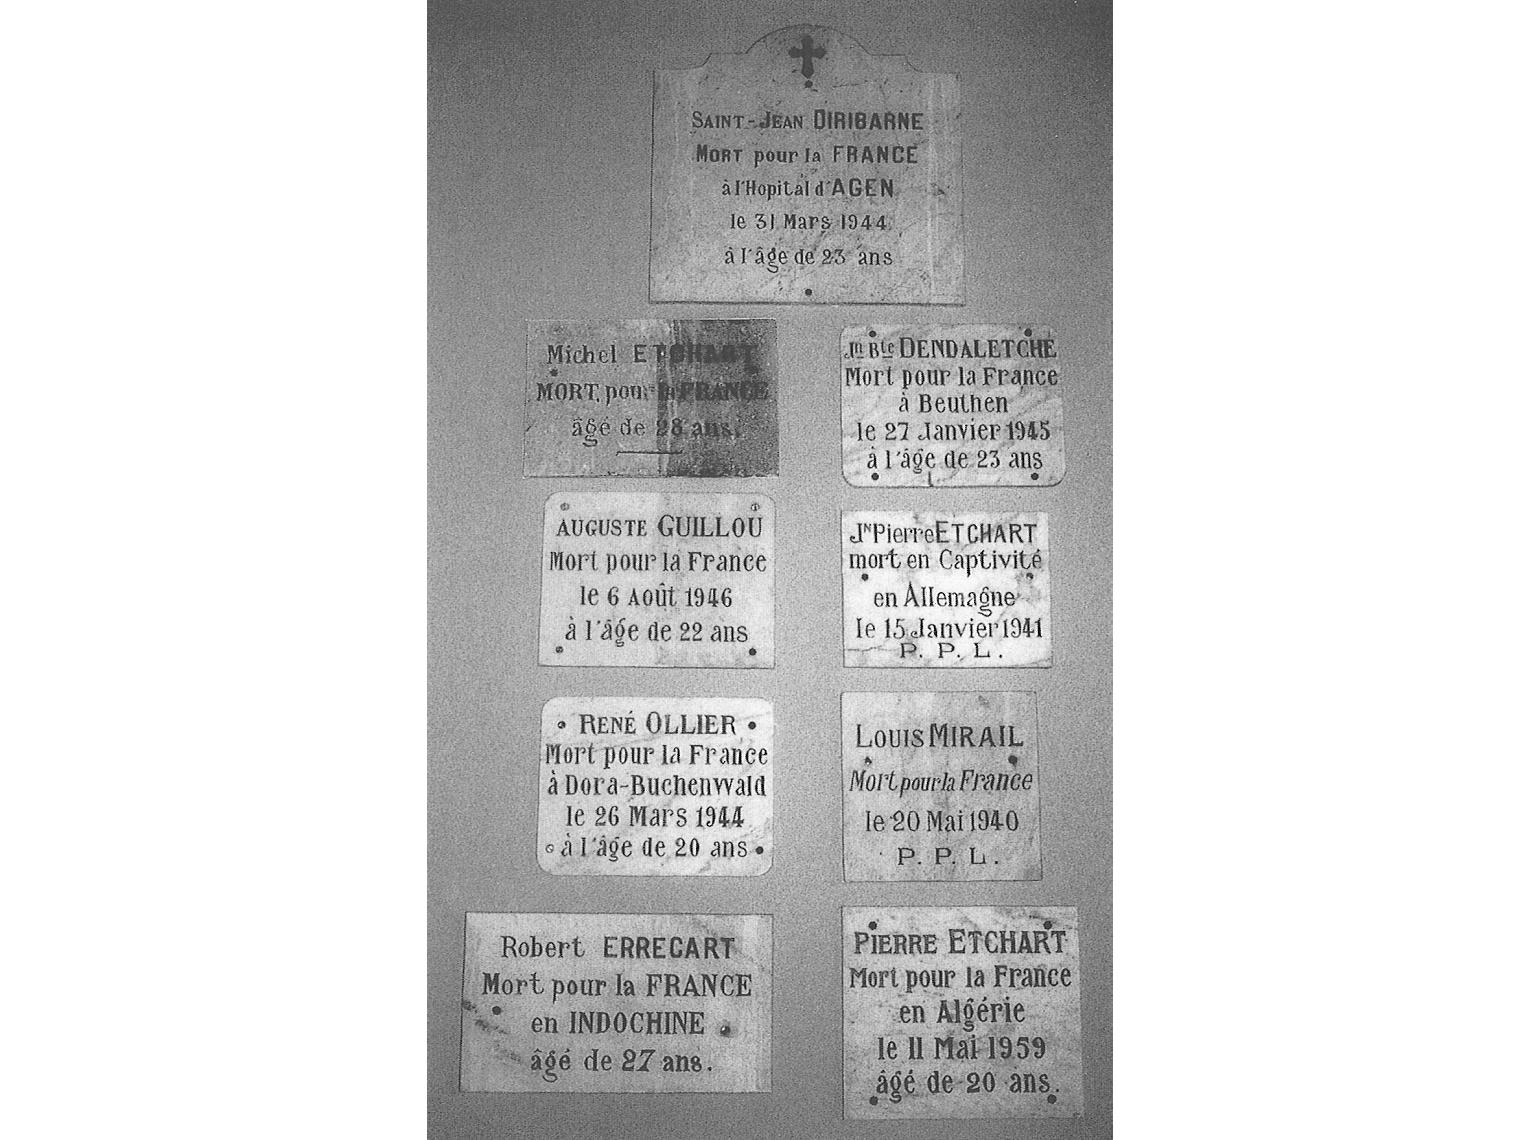 SAINT-JEAN DIRIBARNE
MORT pour la FRANCE
à l'Hopital d'AGEN
le 31 Mars 1944
à l'âge de 23 ans
Michel ETCHART
MORT, pour la FRANCE
âgé de 28 ans.
Jn Bte DENDALETCHE
Mort pour la France
à Beuthen
le 27 Janvier 1945
à l'âge de 23 ans
AUGUSTE GUILLOU
Mort pour la France
le 6 AOÛT 1946
à l'âge de 22 ans
JN Pierre ETCHART
mort en Captivité
en Allemagne
le 15 Janvier 1941
P. P. L.
RENÉ OLLIER
Mort pour la France
à Dora-Buchenwald
le 26 Mars 1944
à l'âge de 20 ans
LOUIS MIRAIL
Mort pour la France
le 20 Mai 1940
P. P. L.
Robert ERRECART
Mort pour la FRANCE
en INDOCHINE
âgé de 27 ans.
PIERRE ETCHART
Mort pour la France
en Algérie
le 11 Mai 1959
âgé de 20 ans.